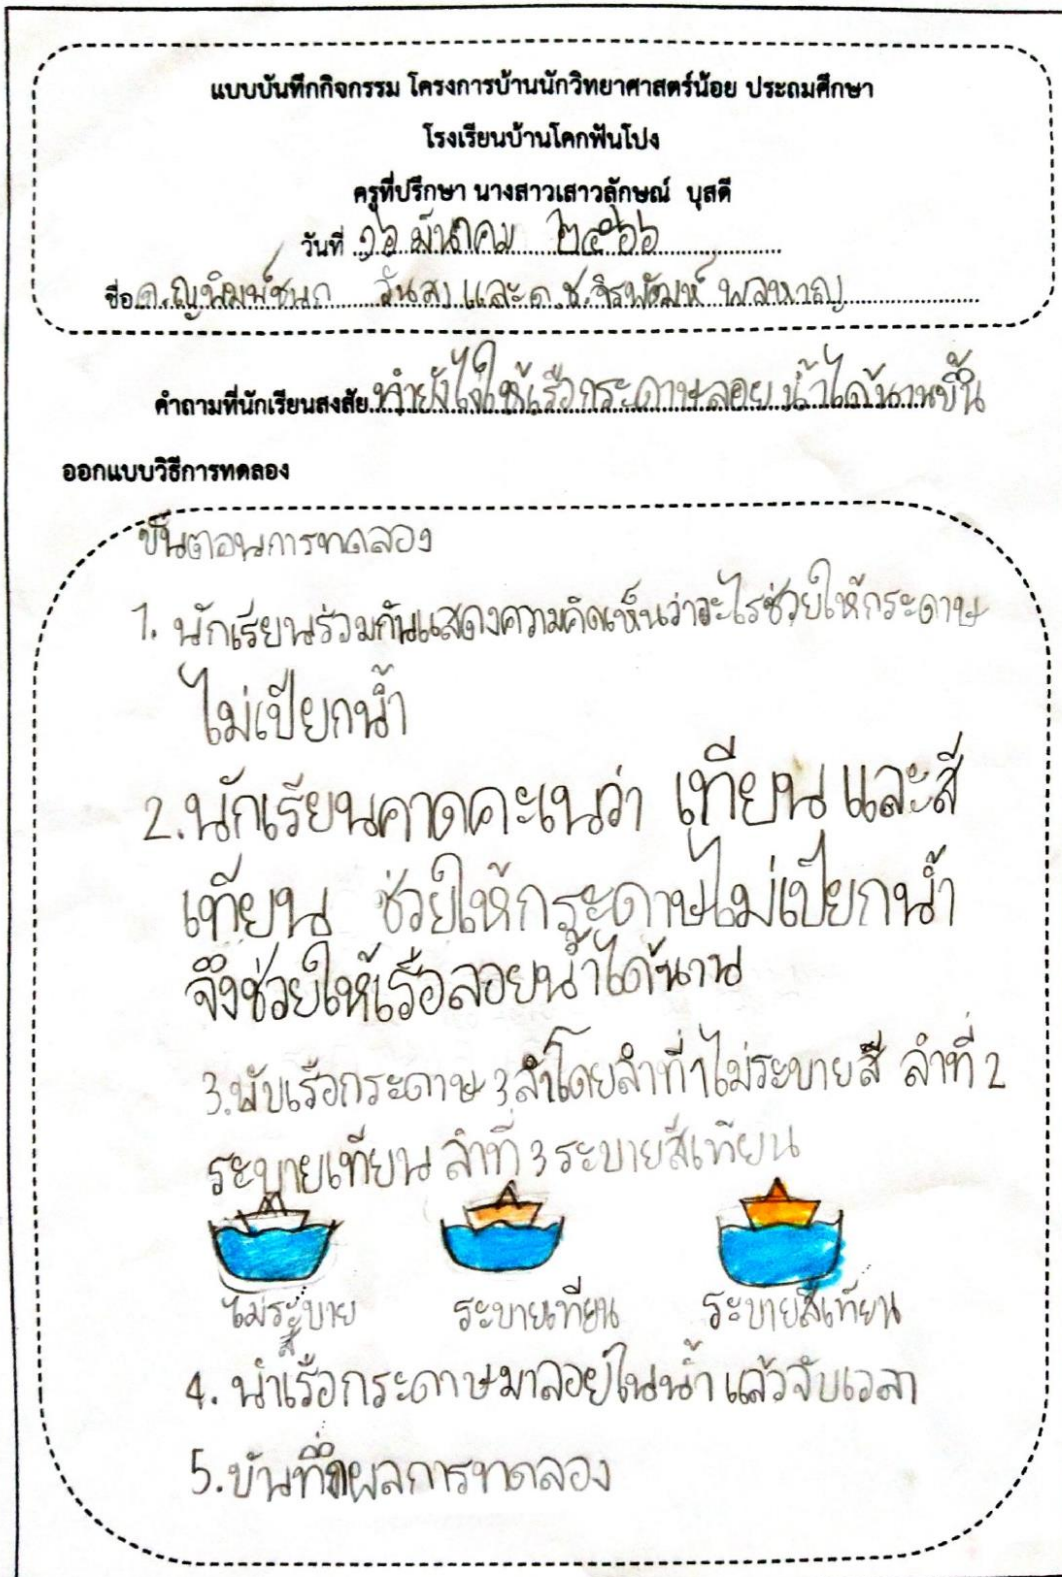 แบบบันทึกกิจกรรม โครงการบ้านนักวิทยาศาสตร์น้อย ประถมศึกษา
โรงเรียนบ้านโคกฟันโปง
ครูที่ปรึกษา นางสาวเสาวลักษณ์ บุสดี
วันที่ ๑๖ มีนาคม ๒๕๖๖
ชื่อ ด.ญ พิมพ์ชนก วันสา และ ด.ช. จิรพัฒน์ พลหาญ
คำถามที่นักเรียนสงสัย ทำยังไงให้เรือกระดาษลอยน้ำได้นานขึ้น
ออกแบบวิธีการทดลอง
ขั้นตอนการทดลอง
1. นักเรียนร่วมกันแสดงความคิดเห็นว่าอะไรช่วยให้กระดาษ
ไม่เปียกน้ำ
2. นักเรียนคาดคะเนว่า เทียน และสี
เทียน ช่วยให้กระดาษไม่เปียกน้ำ
จึงช่วยให้เรือลอยน้ำได้นาน
3. พับเรือกระดาษ 3 ลำโดยลำที่ 1 ไม่ระบายสี ลำที่ 2
ระบายเทียน ลำที่ 3 ระบายสีเทียน
ไม่ระบาย ระบายเทียน ระบายสีเทียน
สี
4. นำเรือกระดาษมาลอยในน้ำ แล้วจับเวลา
5. บันทึกผลการทดลอง